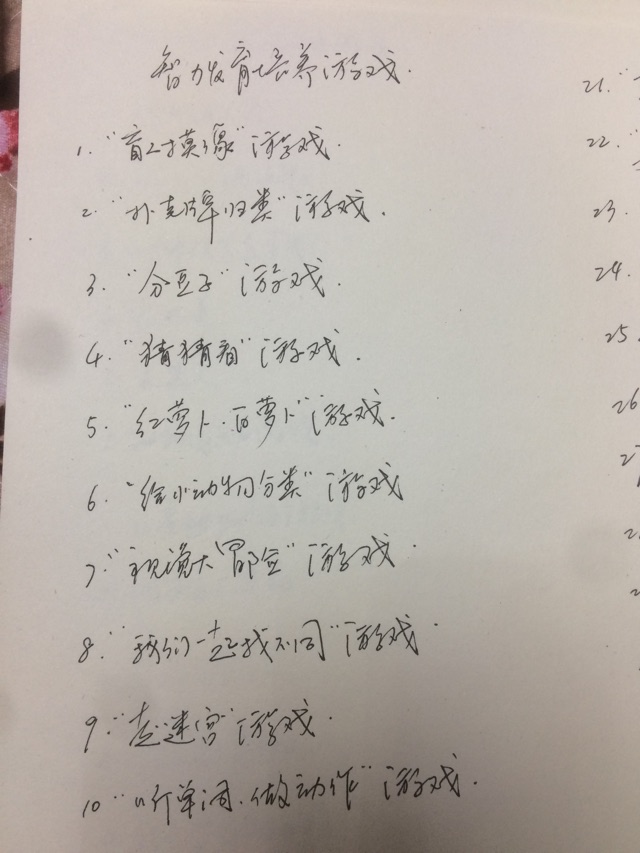 智力发育培养游戏.
1. "盲人摸像"游戏.
2. "扑克牌归类"游戏.
3. "分豆子"游戏.
4. "猜猜看"游戏.
5. "红萝卜.白萝卜"游戏.
6. "给小动物分类"游戏
7. "视觉大冒险"游戏.
8. "我们一起找不同"游戏.
9. "走迷宫"游戏.
10 "听单词.做动作"游戏.
21. "
22. "
23.
24.
25.
26